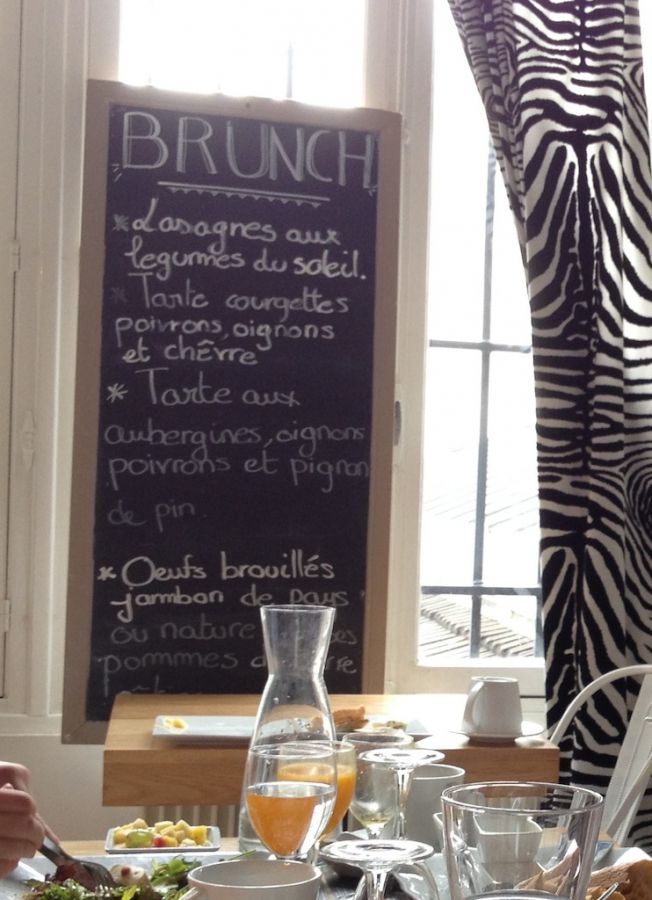 BRUNCH
* Lasagnes aux
legumes du soleil.
* Tarte courgettes
poivrons, oignons
et chèvre
* Tarte aux
aubergines, oignons
poivrons et pignon
de pin.
* Oeufs brouillés
jambon de pays
ou nature
pommes de terre